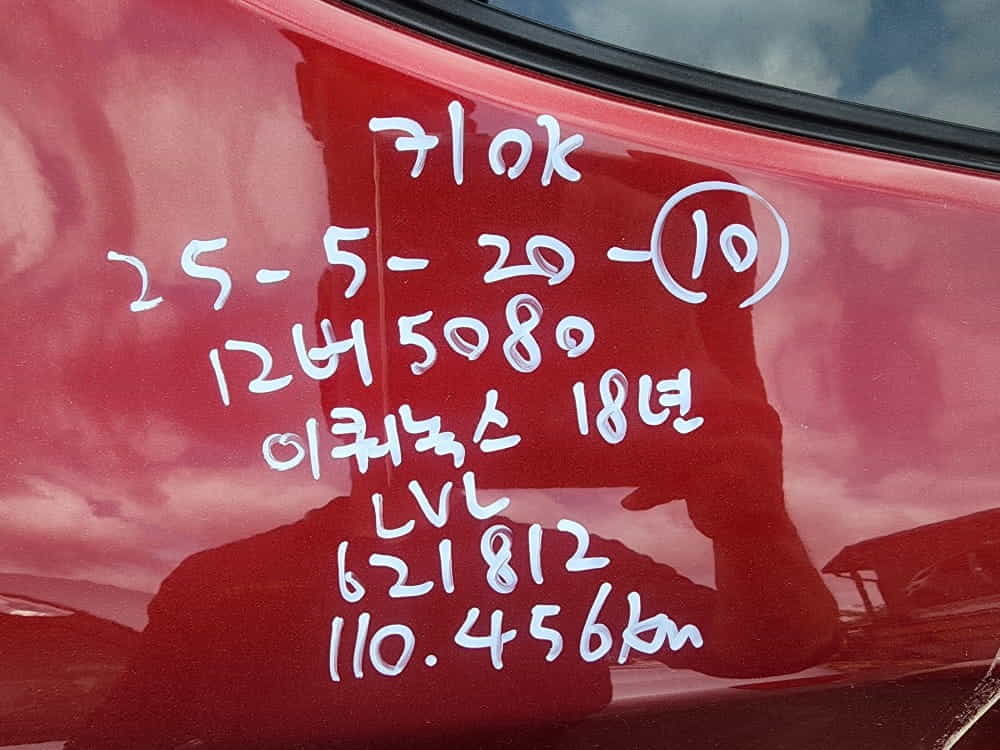 키OK
25-5-20-10
12버5080
이쿼녹스 18년
LVL
621812
110.456km